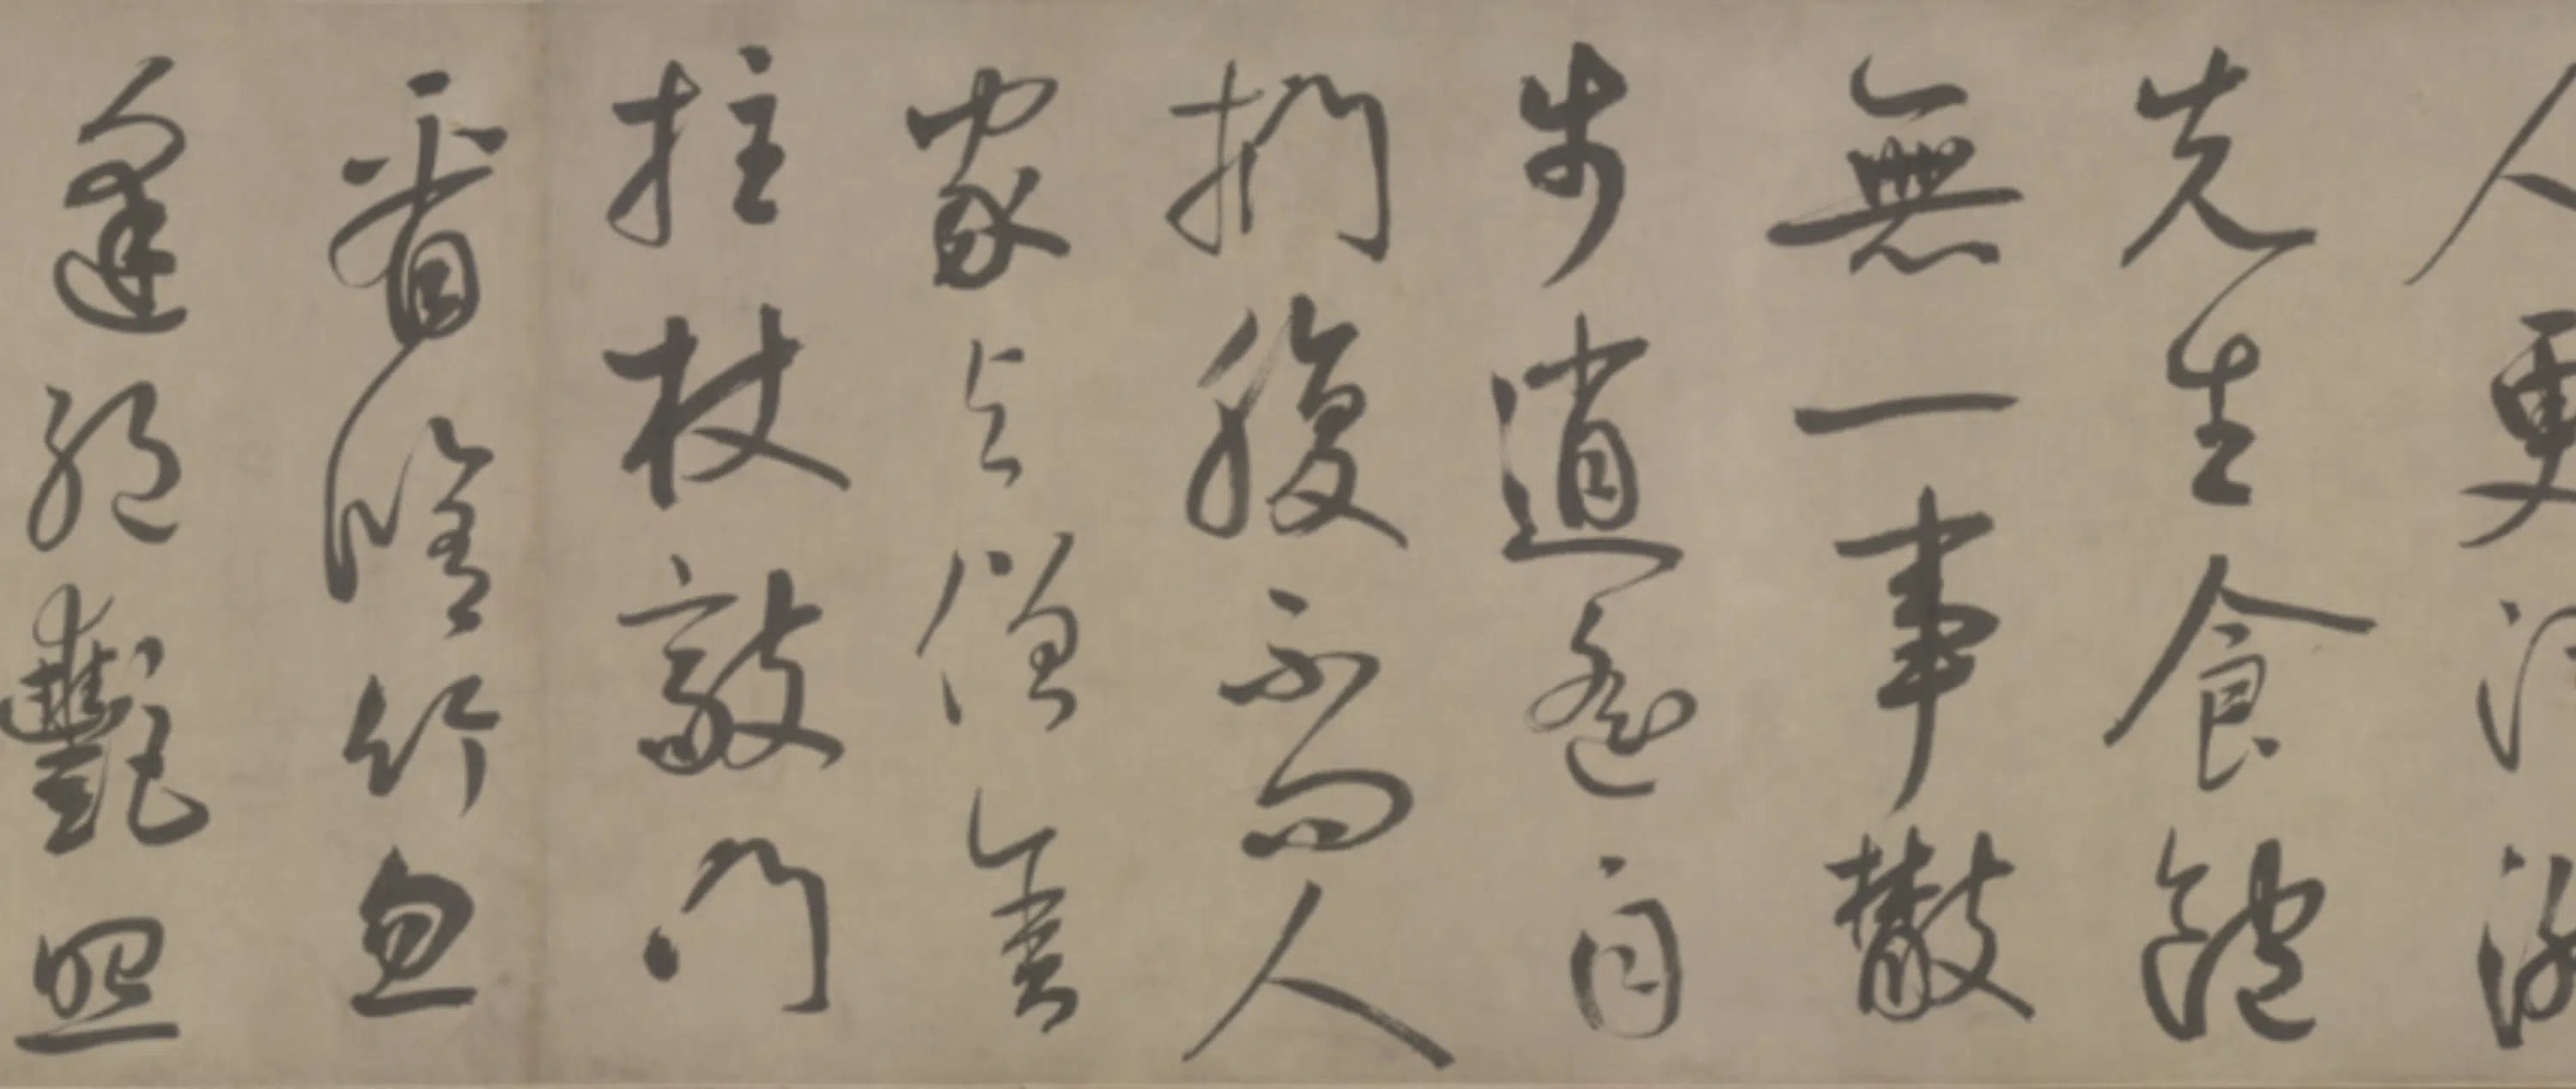 人更
先生食飽
無一事散
步逍遙自
捫腹不問人
家与僧舍
拄杖敲門
看脩竹忽
逢絕艷照